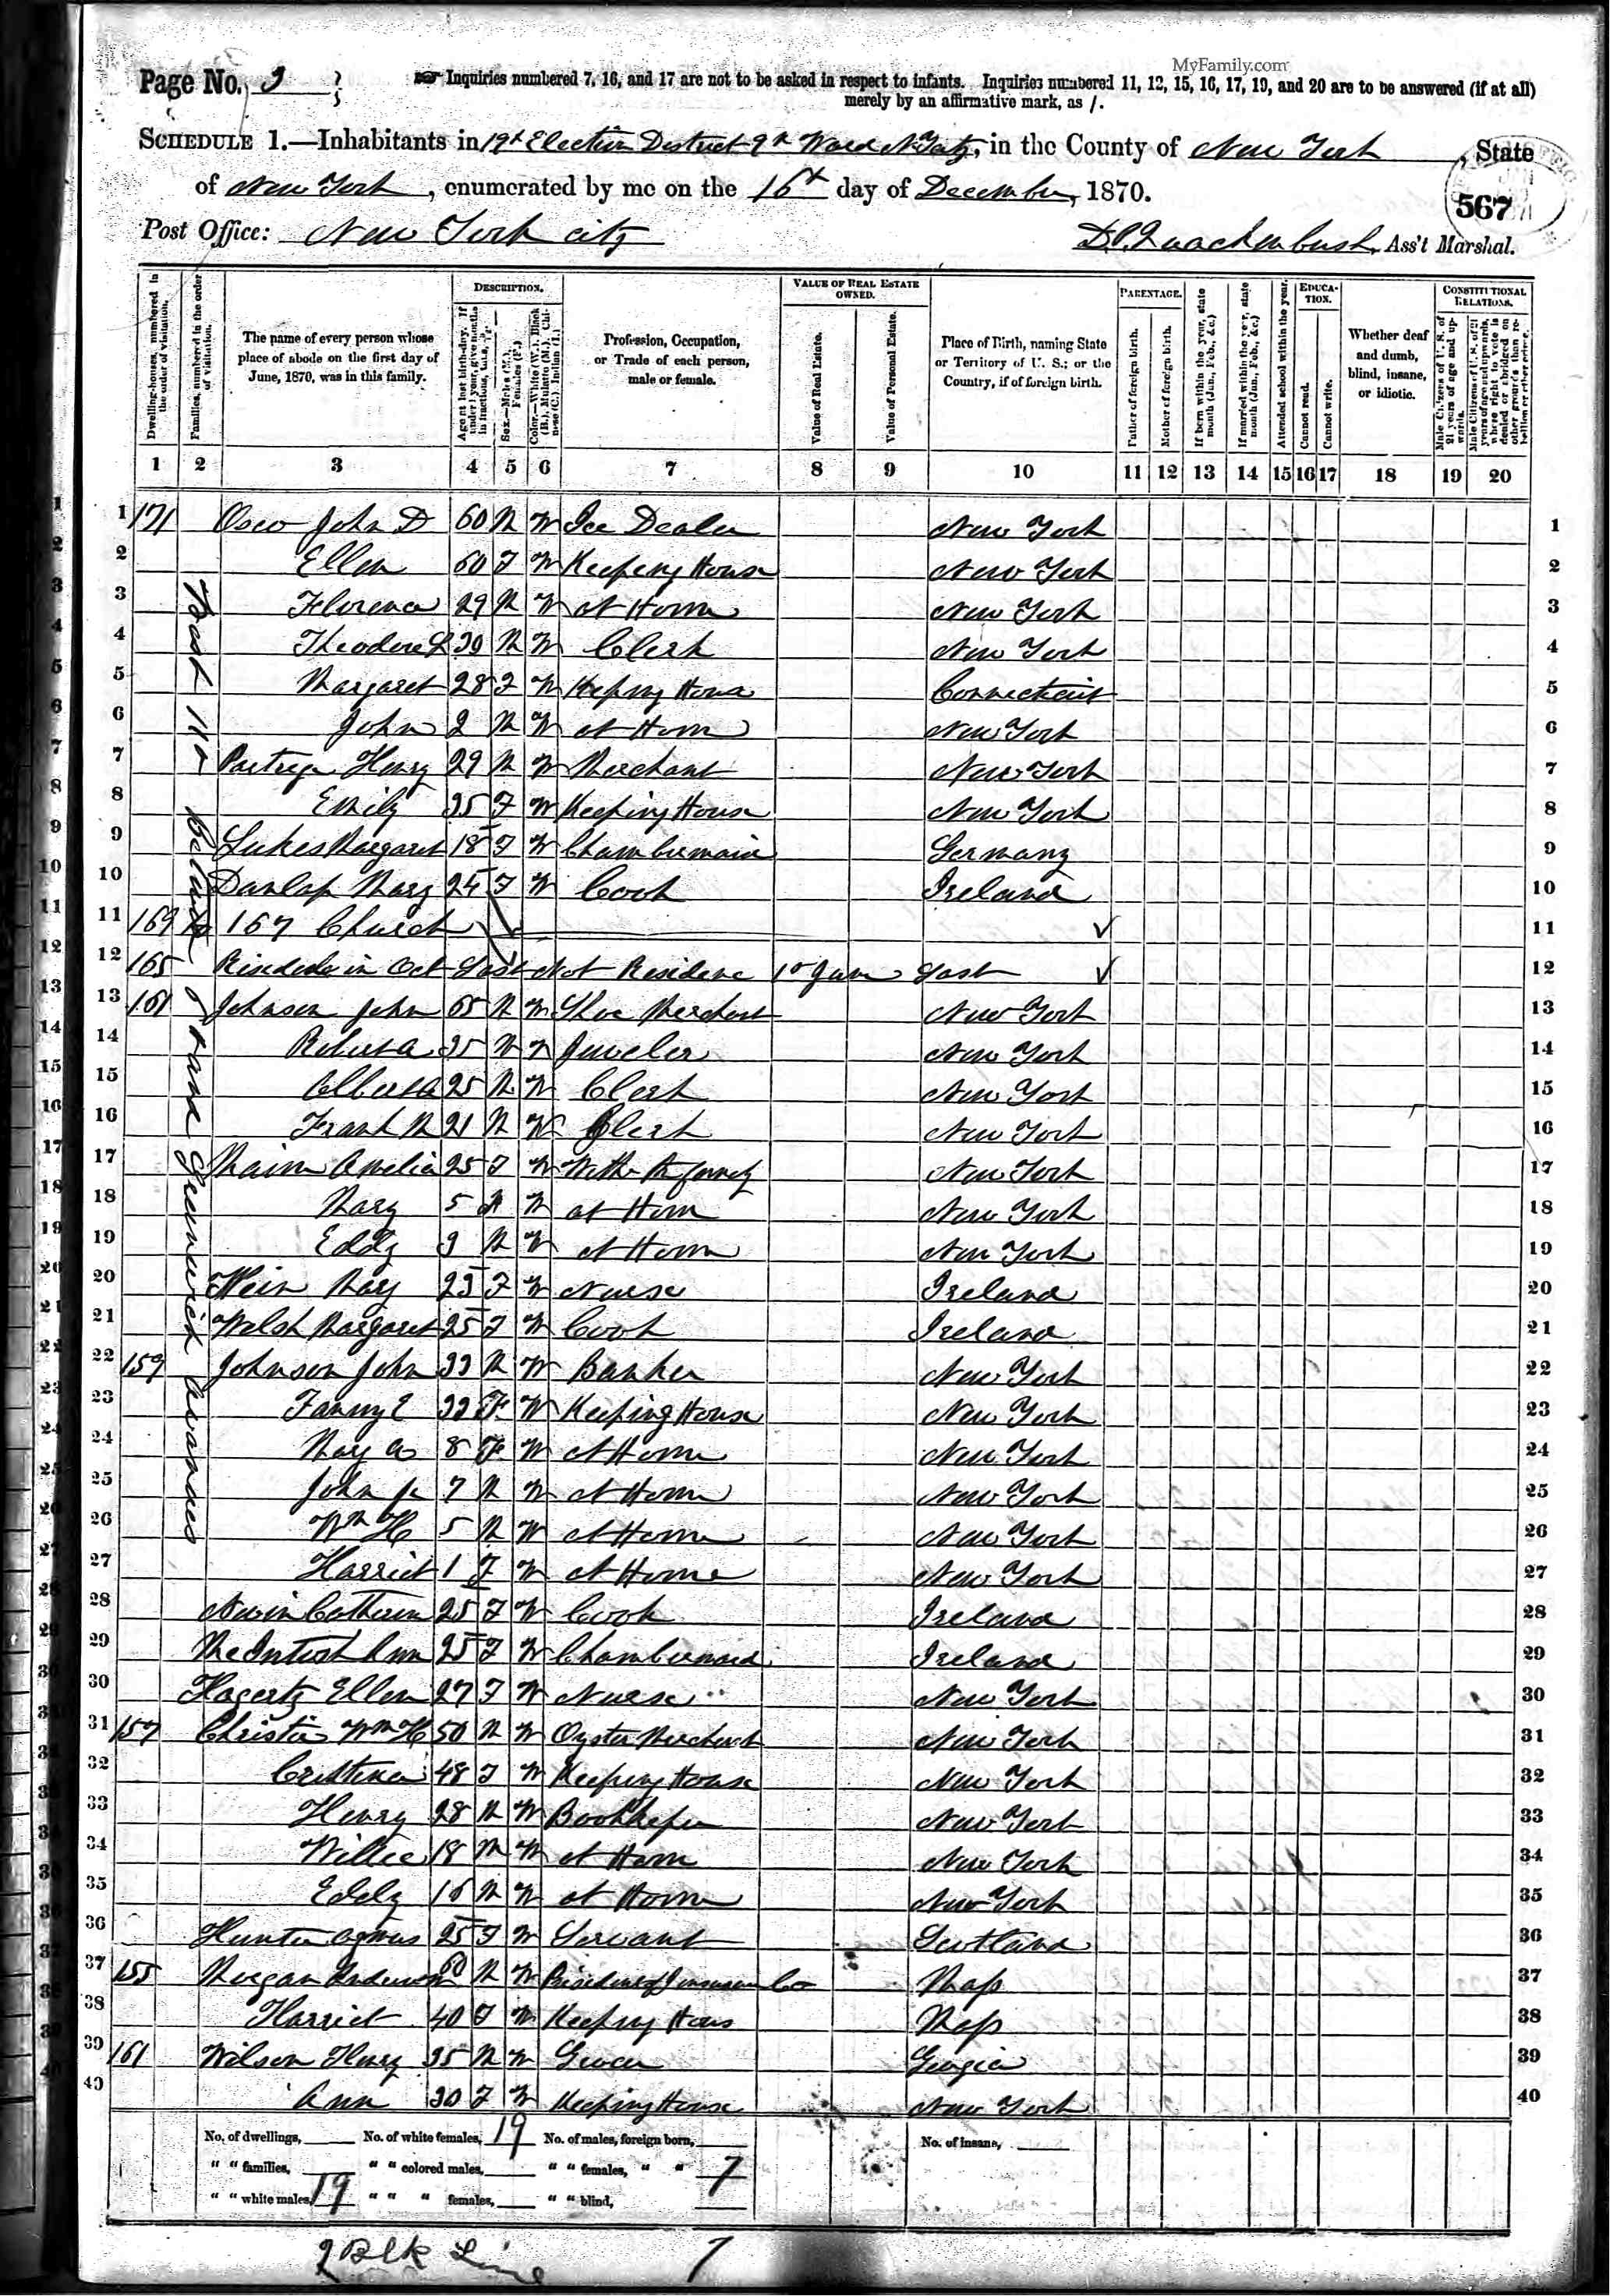 MyFamily.com
Page No. 3
Inquiries numbered 7, 16, and 17 are not to be asked in respect to infants. Inquiries numbered 11, 12, 15, 16, 17, 19, and 20 are to be answered (if at all)
merely by an affirmative mark, as /.
SCHEDULE 1.—Inhabitants in 19th Election District 9th Ward N.Y. City, in the County of New York, State
of New York, enumerated by me on the 16th day of December, 1870.
567
Post Office: New York City D.P. Quackenbush, Ass't Marshal.
Dwelling-houses, numbered in the order of visitation.
Families, numbered in the order of visitation.
The name of every person whose place of abode on the first day of June, 1870, was in this family.
DESCRIPTION.
Age at last birth-day. If under 1 year, give months in fractions, thus, 3/12
Sex.—Males (M.), Females (F.)
Color.—White (W.), Black (B.), Mulatto (M.), Chinese (C.), Indian (I.)
Profession, Occupation, or Trade of each person, male or female.
VALUE OF REAL ESTATE OWNED.
Value of Real Estate.
Value of Personal Estate.
Place of Birth, naming State or Territory of U. S.; or the Country, if of foreign birth.
PARENTAGE.
Father of foreign birth.
Mother of foreign birth.
If born within the year, state month (Jan., Feb., &c.)
If married within the year, state month (Jan., Feb., &c.)
Attended school within the year.
EDUCATION.
Cannot read.
Cannot write.
Whether deaf and dumb, blind, insane, or idiotic.
CONSTITUTIONAL RELATIONS.
Male Citizens of U. S. of 21 years of age and upwards.
Male Citizens of U. S. of 21 years of age and upwards, whose right to vote is denied or abridged on other grounds than rebellion or other crime.
1 2 3 4 5 6 7 8 9 10 11 12 13 14 15 16 17 18 19 20
1 171 John D 60 M W Ice Dealer New York 1
2 Ellen 60 F W Keeping House New York 2
3 Florence 29 M W at Home New York 3
4 Theodore L 30 M W Clerk New York 4
5 Margaret 28 F W Keeping House Connecticut 5
6 John 2 M W at Home New York 6
7 Henry 29 M W Merchant New York 7
8 Emily 25 F W Keeping House New York 8
9 Margaret 18 F W Chambermaid Germany 9
10 Dunlap Mary 24 F W Cook Ireland 10
11 169 to 167 Church ✓ 11
12 165 in Oct Last Not Residence 1st June Last ✓ 12
13 161 Johnson John 65 M W Shoe Merchant New York 13
14 Robert A 35 M W Jeweler New York 14
15 Albert A 25 M W Clerk New York 15
16 Frank M 21 M W Clerk New York 16
17 Amelia 25 F W With the family New York 17
18 Mary 5 W at Home New York 18
19 Eddy 3 M W at Home New York 19
20 Mary 23 F W Nurse Ireland 20
21 Welsh Margaret 25 F W Cook Ireland 21
22 159 Johnson John 33 M W Banker New York 22
23 Fanny E 33 F W Keeping House New York 23
24 May A 8 F W At Home New York 24
25 John Jr 7 M W At Home New York 25
26 Wm H 5 M W at Home New York 26
27 Harriet 1 F W At Home New York 27
28 Catherin 25 F W Cook Ireland 28
29 McIntosh Ann 25 F W Chambermaid Ireland 29
30 Hagerty Ellen 27 F W Nurse New York 30
31 157 Christie Wm H 50 M W Oyster Merchant New York 31
32 Cristina 48 F W Keeping House New York 32
33 Henry 28 M W Bookkeeper New York 33
34 Willie 18 M W at Home New York 34
35 Eddy 16 M W at Home New York 35
36 Hunter Agnes 25 F W Servant Scotland 36
37 155 Morgan Anderson 60 M W President of Insurance Co Mass 37
38 Harriet 40 F W Keeping House Mass 38
39 161 Wilson Henry 35 M W Grocer Georgia 39
40 Ann 30 F W Keeping House New York 40
West 11th Between 6th and Greenwich Avenues
No. of dwellings, No. of white females, 19 No. of males, foreign born, No. of insane,
" " families, " " colored males, " " females, " " 7
" " white males, 19 " " " females, " " blind,
2 Blk Line 7